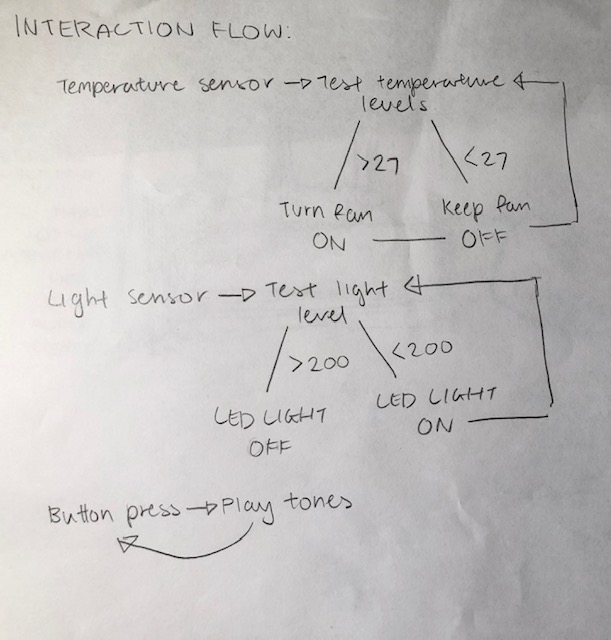 INTERACTION FLOW:
Temperature sensor → Test temperature
levels
>27 <27
Turn fan Keep fan
ON OFF
Light sensor → Test light
level
>200 <200
LED LIGHT LED LIGHT
OFF ON
Button press → Play tones